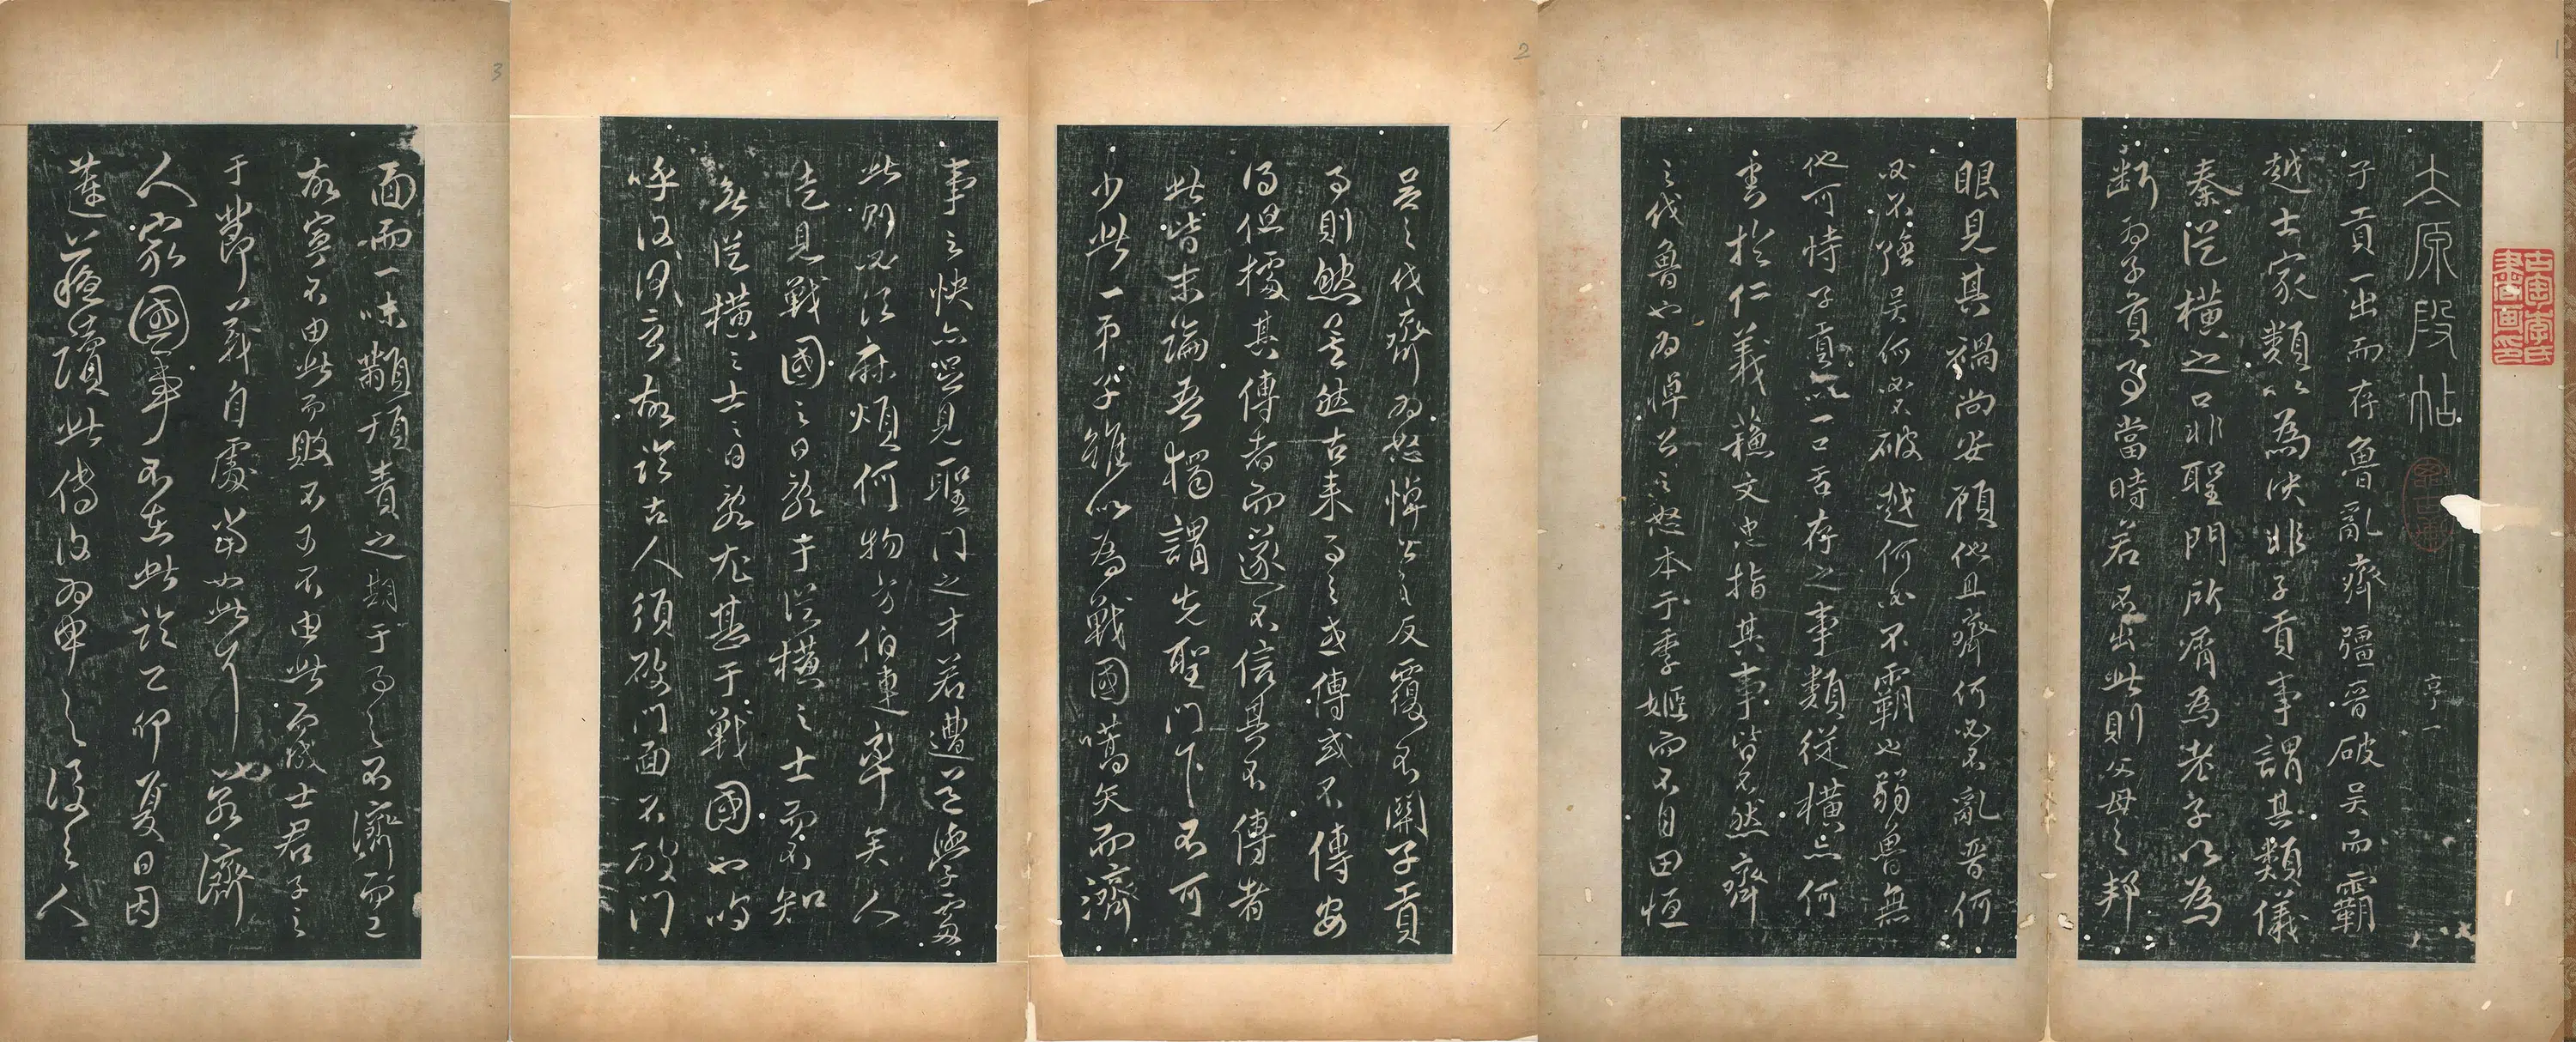 太原段帖
亨一
子貢一出而存魯亂齊疆晉破吳而霸
越士家類以為快非子貢事謂其類儀
秦從橫之口非聖門所屑為老子以為
斷為子貢事當時若不出此則父母之邦
眼見其禍尚安顧他且齊何必不亂晉何
必不強吳何必不破越何必不霸也弱魯無
他可恃子貢以一口舌存之事類從橫亦何
害於仁義蘇文忠指其事皆不然齊
之伐魯也為悼公之怒本于季姬而不自田恒
吳之伐齊為怒悼公之反覆不關子貢
事則然矣然古來事之或傳或不傳安
得但據其傳者而遂不信其不傳者
此皆末論吾獨謂先聖門下不可
少此一弟子雖以為戰國嚆矢而濟
事之快亦足見聖門之才若遭足與學處
此則必須麻煩何物方伯連率矣人
徒見戰國之日亂于從橫之士而不知
無從橫之士之日亂尤甚于戰國也嗚
呼汲汲亨故論古人須破門面不破門
面而一味顢頇責之期于事之不濟而已
故寧不由此而敗不可不由此而成士君子之
于節義自處當如此耳若濟
人家國事不在此論己卯夏日因
蓮蘇讀此傳故為申之後之人
古陶李氏書畫印